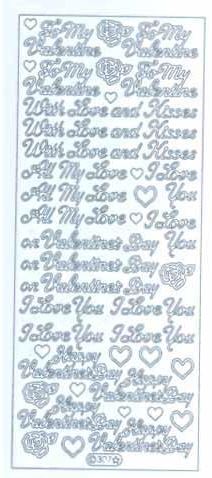 To My To My
Valentine Valentine
To My To My
Valentine Valentine
With Love and Kisses
With Love and Kisses
With Love and Kisses
All My Love I Love
All My Love You
All My Love I Love
on Valentine's Day You
on Valentine's Day
on Valentine's Day
I Love You I Love You
I Love You I Love You
Happy
Valentine's Day Happy
Valentine's Day
Happy
Valentine's Day Happy
Valentine's Day